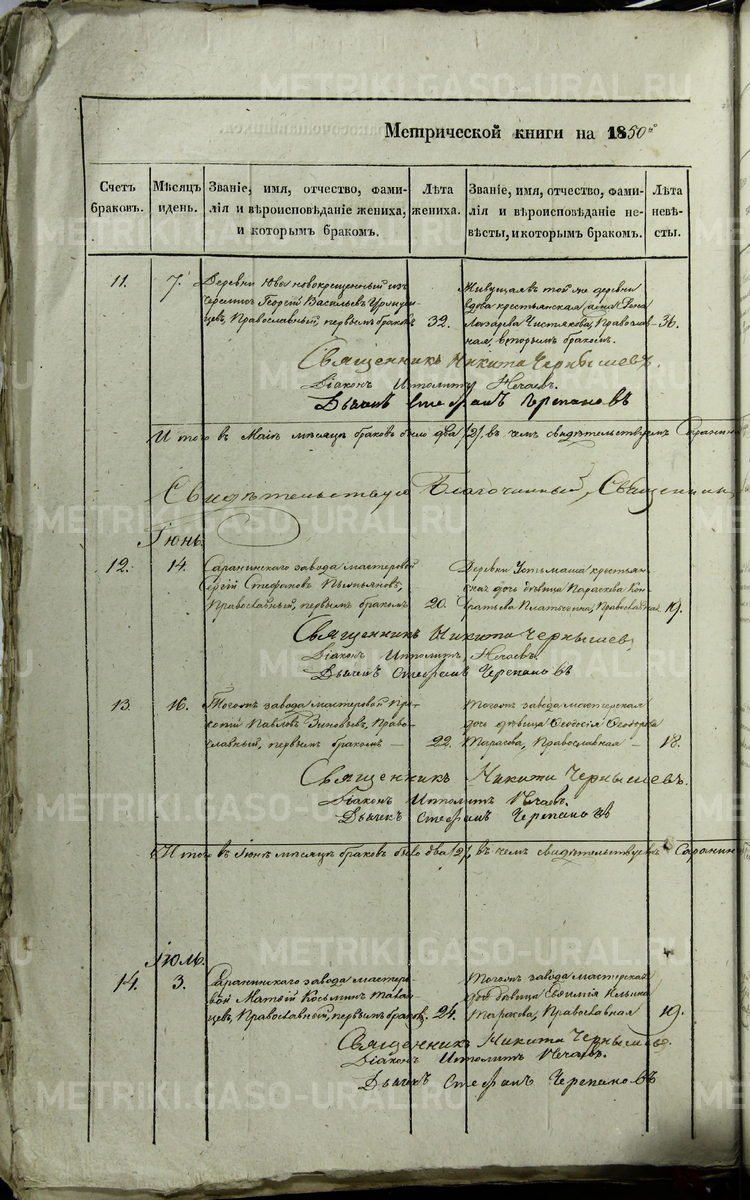 Метрической книги на 1850й
Счетъ браковъ.
Мѣсяцъ и день.
Званіе, имя, отчество, фами-
лія и вѣроисповѣданіе жениха,
и которымъ бракомъ.
Лѣта жениха.
Званіе, имя, отчество, фами-
лія и вѣроисповѣданіе не-
вѣсты, и которымъ бракомъ.
Лѣта невѣ-
сты.
11.
7.
Деревни Ювы новокрещенный изъ
черемисъ Георгій Васильевъ
Православный, первымъ бракомъ
32.
Живущая въ той же деревни
вдова крестьянская
Лазарева Чистякова, Православ-
ная, вторымъ бракомъ.
36.
Священникъ Никита Чернышевъ.
Діаконъ Ипполитъ Нечаевъ.
Дьячекъ Стефанъ Черепановъ
Итого въ Маіѣ мѣсяцѣ браковъ было два /2/, въ чемъ свидѣтельствуемъ Саранин
Свидѣтельствуя Благочинный, Священник
Іюнь.
12.
14.
Саранинскаго завода мастеровой
Сергій Стефановъ
Православный, первымъ бракомъ
20.
Деревни Усть маша крестьян-
ская дочь дѣвица Параскева Кон-
дратьева Православная
19.
Священникъ Никита Чернышев
Діаконъ Ипполитъ Нечаевъ.
Дьячекъ Стефанъ Черепановъ
13.
16.
Тогожъ завода мастеровой Про-
копій Павловъ Зиновьевъ, Право-
славный, первымъ бракомъ
22.
Тогожъ завода мастерская
дочь дѣвица Ѳеодосія Ѳеодорова
Тарасова, Православная
18.
Священникъ Никита Чернышевъ.
Діаконъ Ипполитъ Нечаевъ.
Дьячекъ Стефанъ Черепановъ
Итого въ Іюнѣ мѣсяцѣ браковъ было два /2/, въ чемъ свидѣтельствуемъ Саранин
Іюль.
14.
3.
Саранинскаго завода мастеро-
вой Матѳій Косьминъ
Православный, первымъ бракомъ.
24.
Тогожъ завода мастерская
дочь дѣвица Евѳимія Ильина
Тарасова, Православная
19.
Священникъ Никита Чернышевъ
Діаконъ Ипполитъ Нечаевъ.
Дьячекъ Стефанъ Черепановъ
METRIKI.GASO-URAL.RU